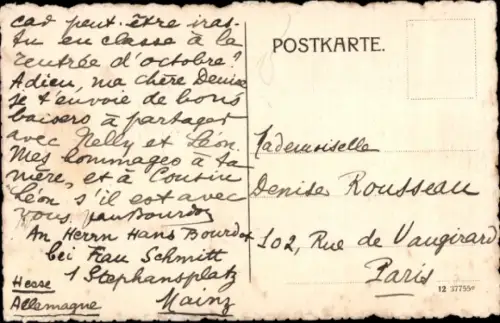 car peut-être iras-
tu en classe à la
rentrée d'octobre?
Adieu, ma chère Denise
je t'envoie de bons
baisers à partager
avec Nelly et Léon.
Mes hommages à ta
mère, et à Cousin
Léon s'il est avec
vous. Jean Bourdon
An Herrn Hans Bourdot
bei Frau Schmitt
1 Stephansplatz
Mainz
Hesse
Allemagne
POSTKARTE.
Mademoiselle
Denise Rousseau
102, Rue de Vaugirard
Paris
12 37755